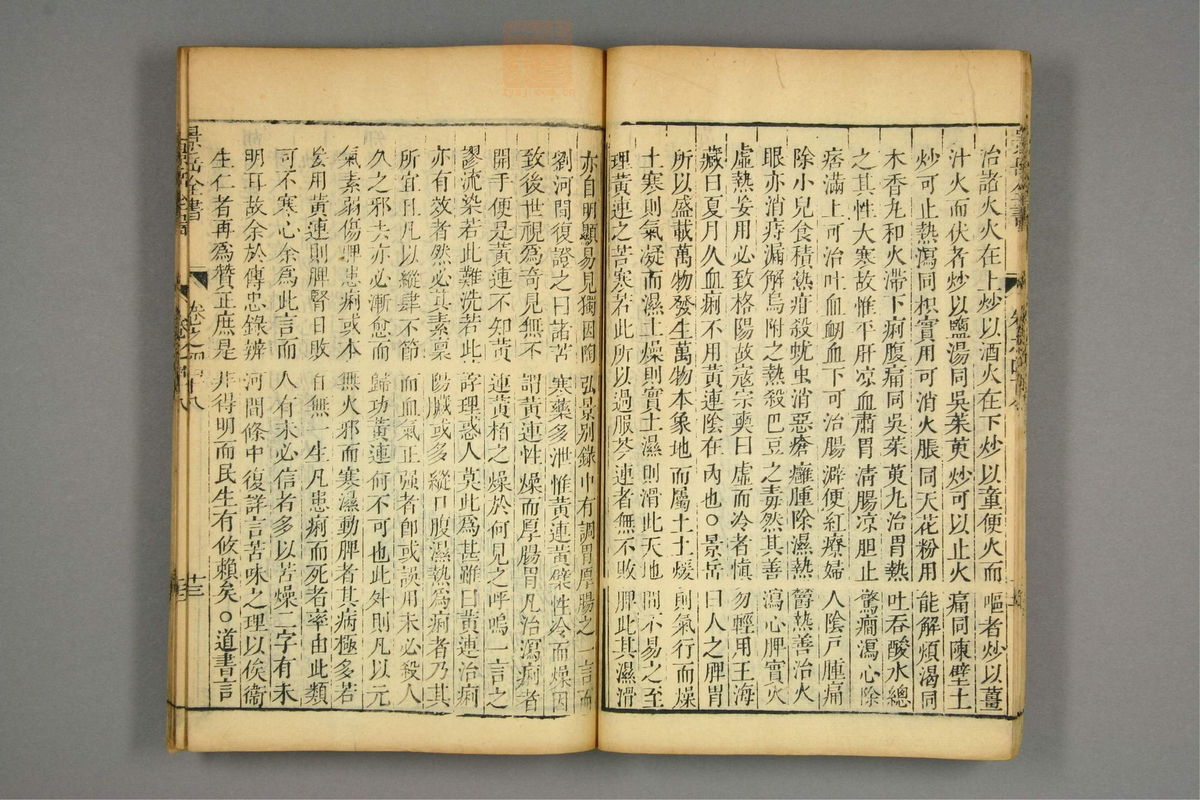 治諸火火在上炒以酒火在下炒以童便火而嘔者炒以薑
汁火而伏者炒以鹽湯同吳茱萸炒可以止火痛同陳壁土
炒可止熱瀉同枳實用可消火脹同天花粉用能解煩渴同
木香丸和火滯下痢腹痛同吳茱萸丸治胃熱吐吞酸水總
之其性大寒故惟平肝凉血肅胃清腸凉胆止驚癇瀉心除
痞滿上可治吐血衂血下可治腸澼便紅療婦人陰戸腫痛
除小兒食積熱疳殺蚘虫消惡瘡癰腫除濕熱欝熱善治火
眼亦消痔漏解烏附之熱殺巴豆之毒然其善瀉心脾實火
虛熱妄用必致格陽故寇宗奭曰虛而冷者慎勿輕用王海
藏曰夏月久血痢不用黃連陰在內也○景岳曰人之脾胃
所以盛載萬物發生萬物本象地而屬土土煖則氣行而燥
土寒則氣凝而濕土燥則實土濕則滑此天地間不易之至
理黃連之苦寒若此所以過服芩連者無不敗脾此其濕滑
亦自明顯易見獨因陶弘景別錄中有調胃厚腸之一言而
劉河間復證之曰諸苦寒藥多泄惟黃連黃蘗性冷而燥因
致後世視爲奇見無不謂黃連性燥而厚腸胃凡治瀉痢者
開手便是黃連不知黃連黃栢之燥於何見之呼嗚一言之
謬流染若此難洗若此悖理惑人莫此爲甚雖曰黃連治痢
亦有效者然必其素稟陽臟或多縱口腹濕熱爲痢者乃其
所宜且凡以縱肆不節而血氣正强者卽或誤用未必殺人
久之邪去亦必漸愈而歸功黃連何不可也此外則凡以元
氣素弱傷脾患痢或本無火邪而寒濕動脾者其病極多若
妄用黃連則脾腎日敗百無一生凡患痢而死者率由此類
可不寒心余爲此言而人有未必信者多以苦燥二字有未
明耳故余於傳忠錄辨河間條中復詳言苦味之理以俟衞
生仁者再爲贊正庶是非得明而民生有攸賴矣○道書言
景岳全書
卷之四十八